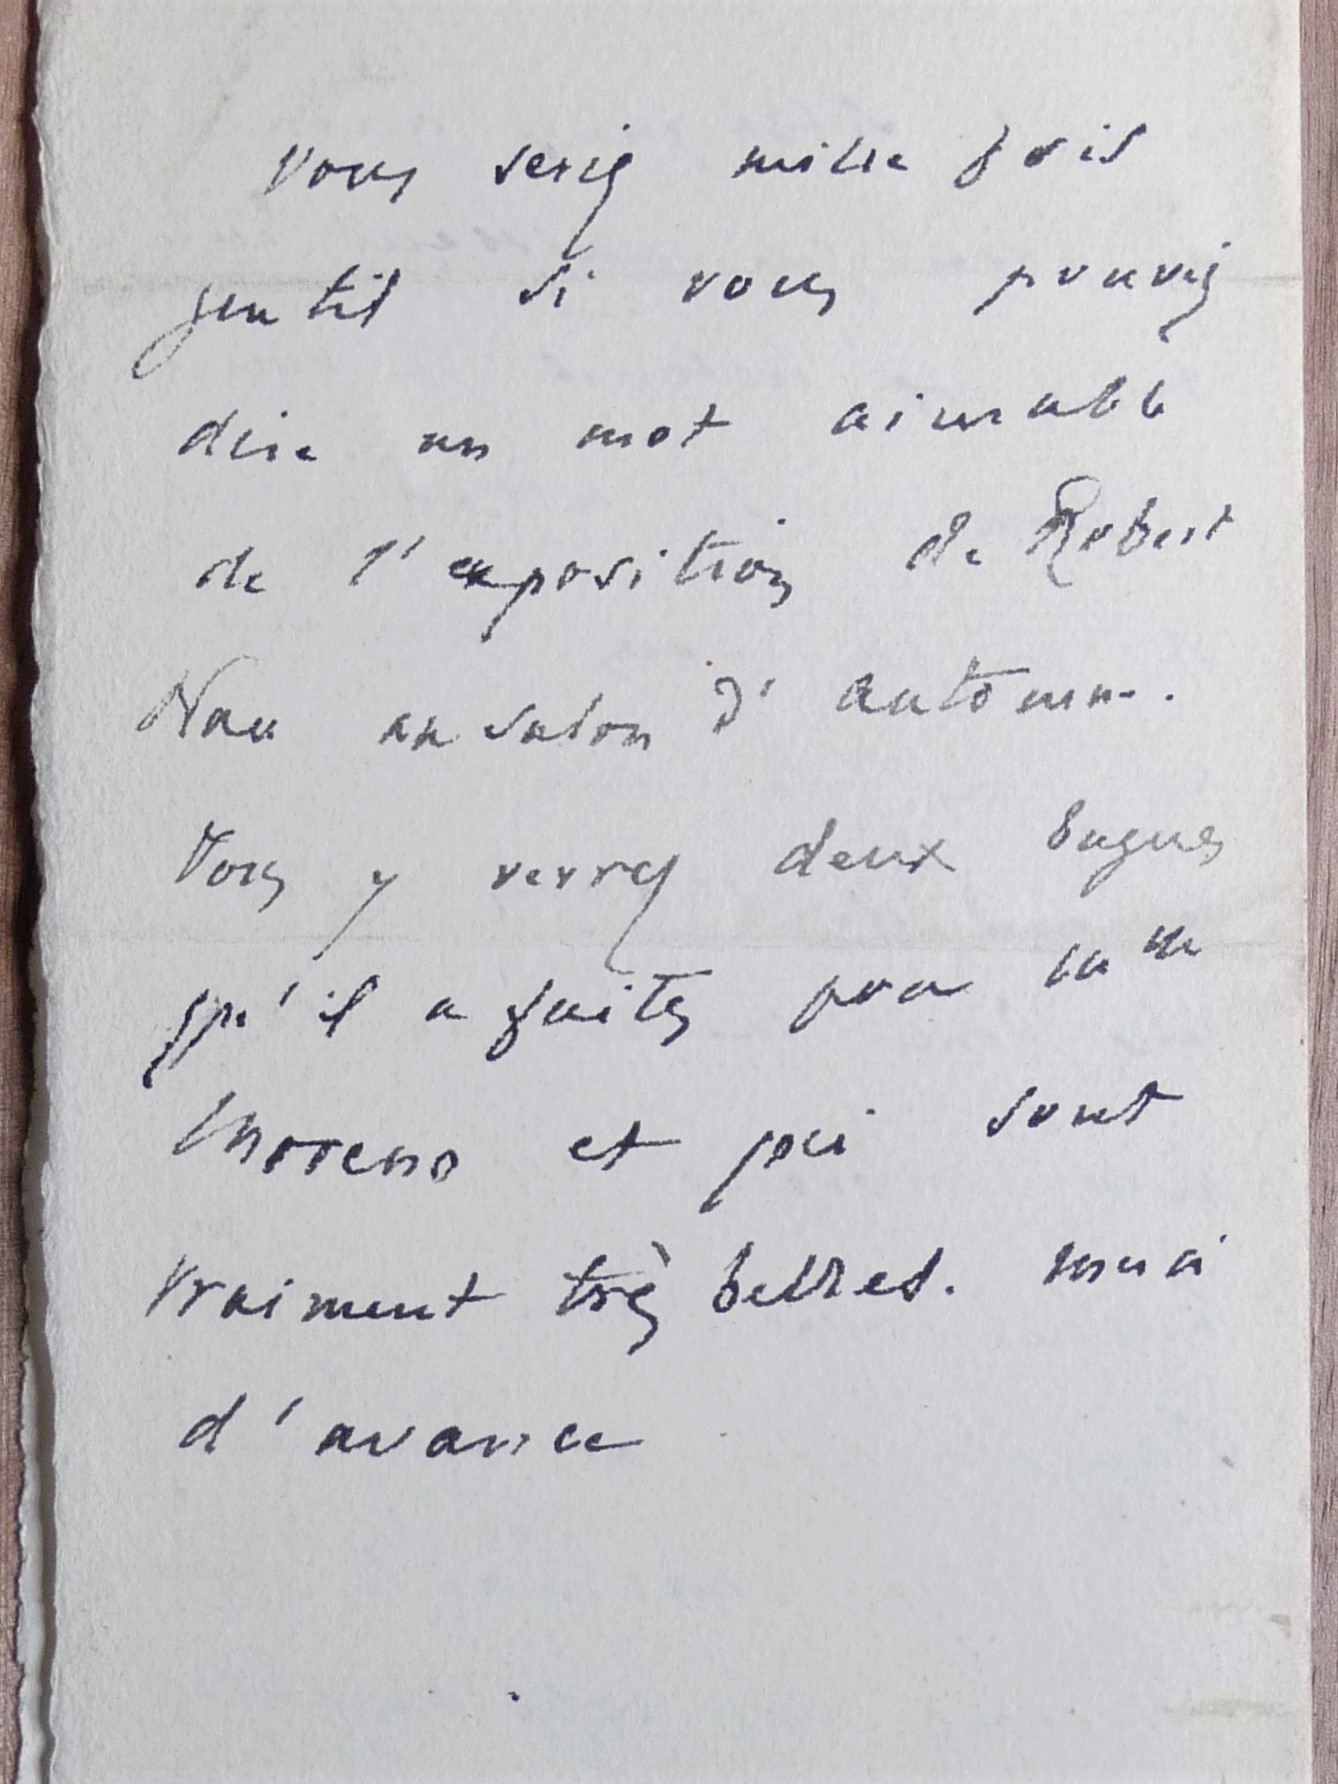 Vous seriez mille fois
gentil si vous pouviez
dire un mot aimable
de l'exposition de Robert
Nau au salon d'automne.
Vous y verrez deux bagues
qu'il a faites pour Mme
Moreno et qui sont
vraiment très belles. merci
d'avance